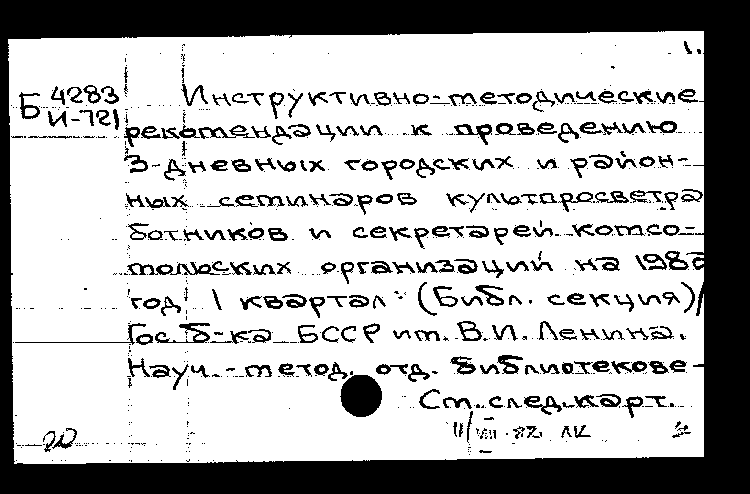 1.
Б 4283
И-721
Инструктивно-методические
рекомендации к проведению
3-дневных городских и район-
ных семинаров культпросветра
ботников и секретарей комсо-
мольских организаций на 1982
год I квартал: (Библ. секция)/
Гос. б-ка БССР им. В.И. Ленина.
Науч.-метод. отд. библиотекове-
См. след. карт.
20
11/VIII-82 ЛК